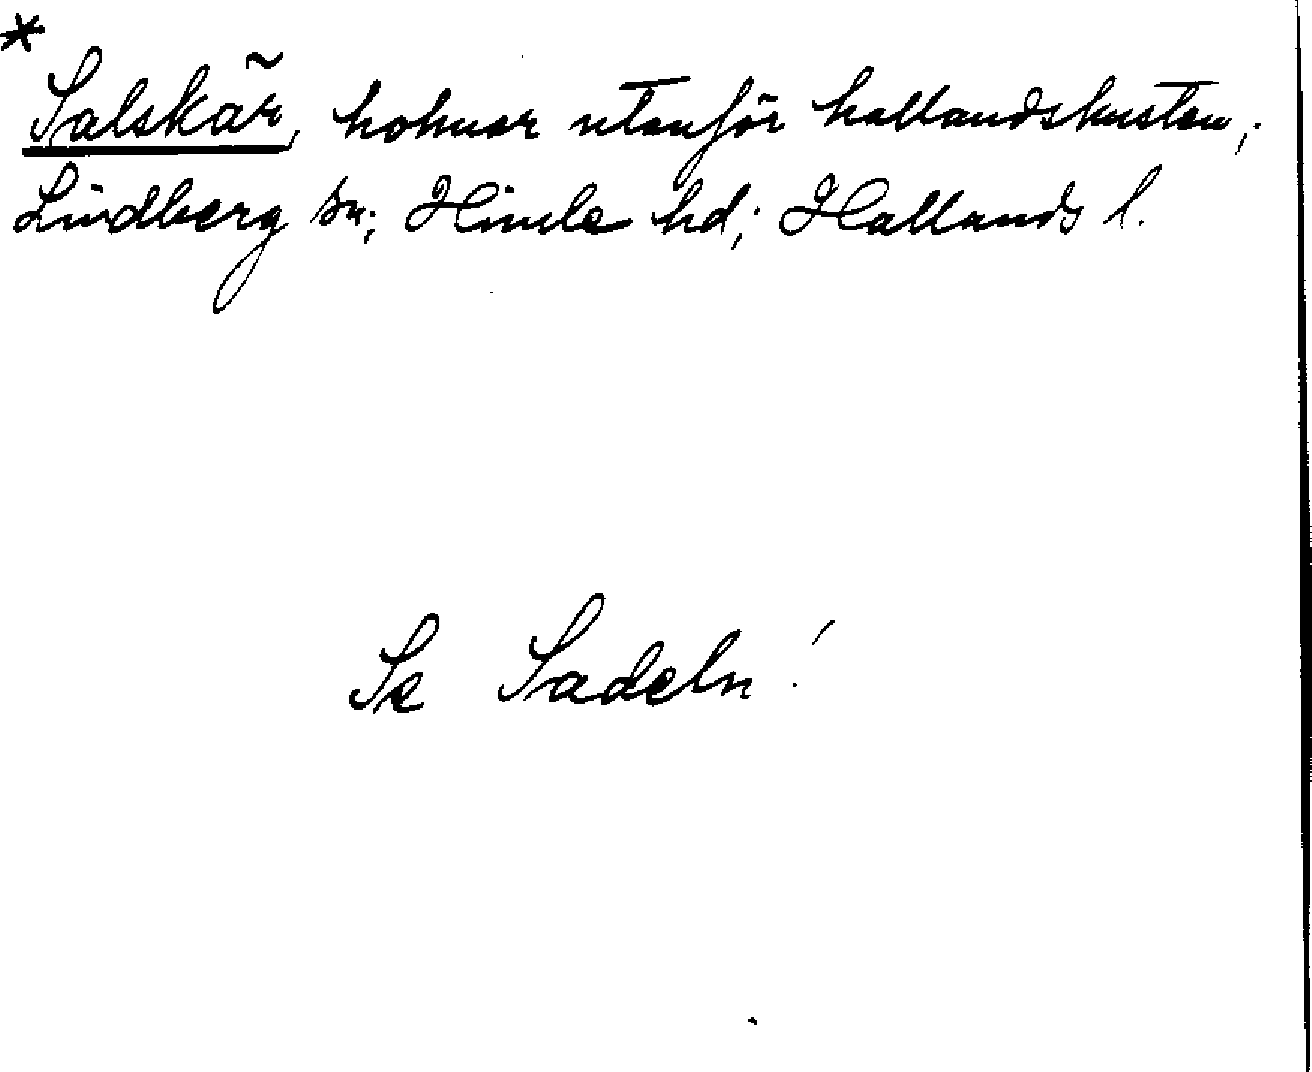 *
Salskär, holmar utanför hallandskusten;
Lindberg sn; Himle hd; Hallands l.
Se Sadeln!